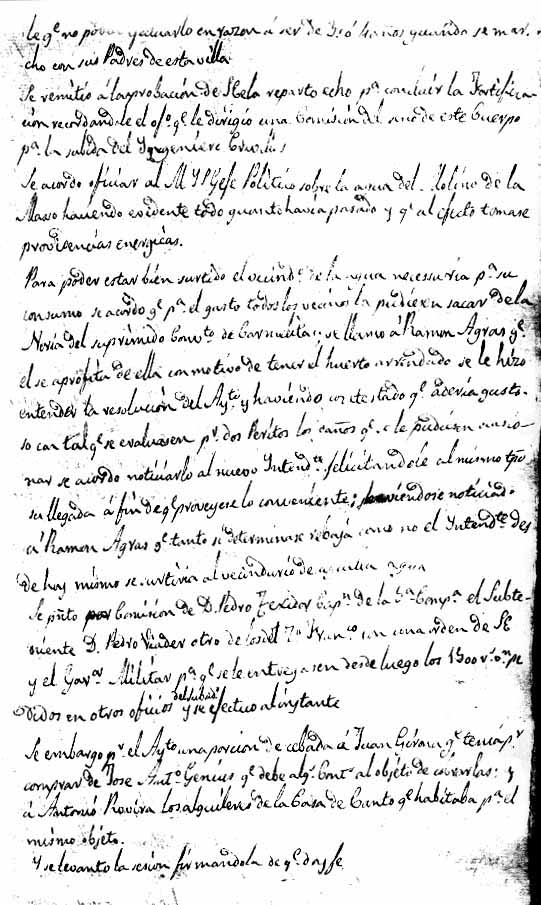 le q.e no podia graduarlo en razon á ser de 3 ó 4 años quando se mar-
cho con sus Padres de esta villa
Se remitió á la aprobación de S E el a reparto echo p.a concluir la Fortifica-
cion recordandole el of.o q.e le dirigió una Comisión del seno de este Cuerpo
p.a la subida del Yngeniero
Se acordo oficiar al M Y S Gefe Politico sobre la agua del Molino de la
Maso haciendo evidente todo quanto havia pasado y q.e al efecto tomase
providencias energicas.
Para poder estar bien surtido el vecind.o de la agua necessaria p.a su
consumo se acordo q.e p.a el gusto todos los vecinos la pudiesen sacar de la
Noria del suprimido Conv.to de Carmelitas; se llamo á Ramon Agras q.e
el se aprofita de ella con motivo de tener el huerto arrendado se le hizo
entender la resolución del Ay.to y haviendo contestado q.e aderia gusto-
so con tal q.e se evaluasen p.r dos Peritos los daños q.e se le pudiesen ocasio-
nar se acordo noticiarlo al nuevo Intend.te felicitandole al mismo tpo
su llegada á fin de q.e proveyese lo conveniente; haviendose noticiado
á Ramon Agras q.e tanto si determinase rebaja como no el Intend.te des-
de hoy mismo se surtiria al vecindario de aquella agua
Se pñto por Comision de D. Pedro Texidor Cap.n de la 5.a Comp.a el Subte-
niente D. Pedro otro de los del 7.o Fran.co con una orden de S E
y el Gov.or Militar p.a q.e se le entregasen desde luego los 1500 r.s v.n pe-
didos en otros oficios del subsid.o y se efectuo al instante
Se embargo p.r el Ay.to una porcion de cebada á Juan Górau q.e tenia p.r
comprar de Jose Ant.o Genius q.e debe alg.s Cont.s al objeto de cobrarlas; y
á Antonio Rovira los alquileres de la Casa de Canto q.e habitaba p.a el
mismo objeto.
Y se levanto la sesion firmandola de q.e doy fe